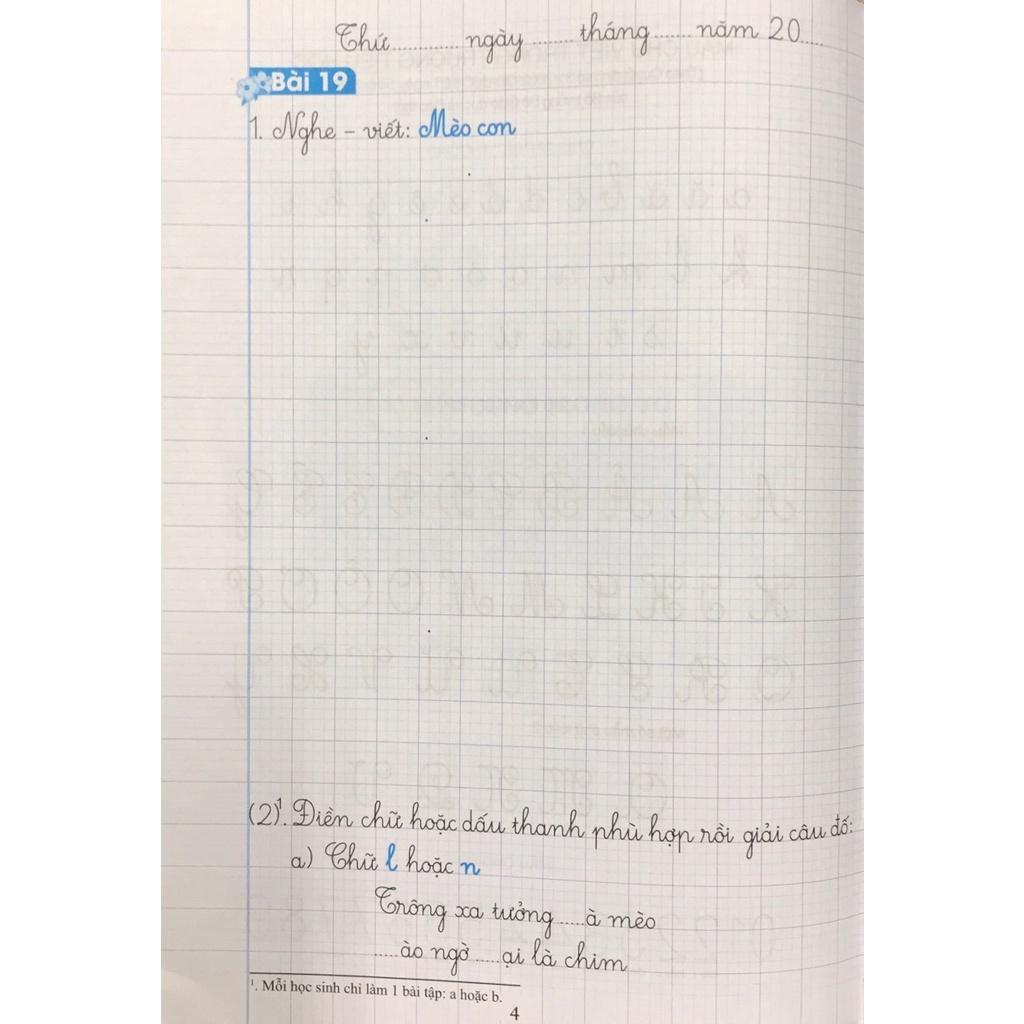 Thứ............. ngày......... tháng........ năm 20.....
Bài 19
1. Nghe – viết: Mèo con
(2)¹. Điền chữ hoặc dấu thanh phù hợp rồi giải câu đố:
a) Chữ l hoặc n
Trông xa tưởng.....à mèo
.....ào ngờ.....ại là chim
¹. Mỗi học sinh chỉ làm 1 bài tập: a hoặc b.
4